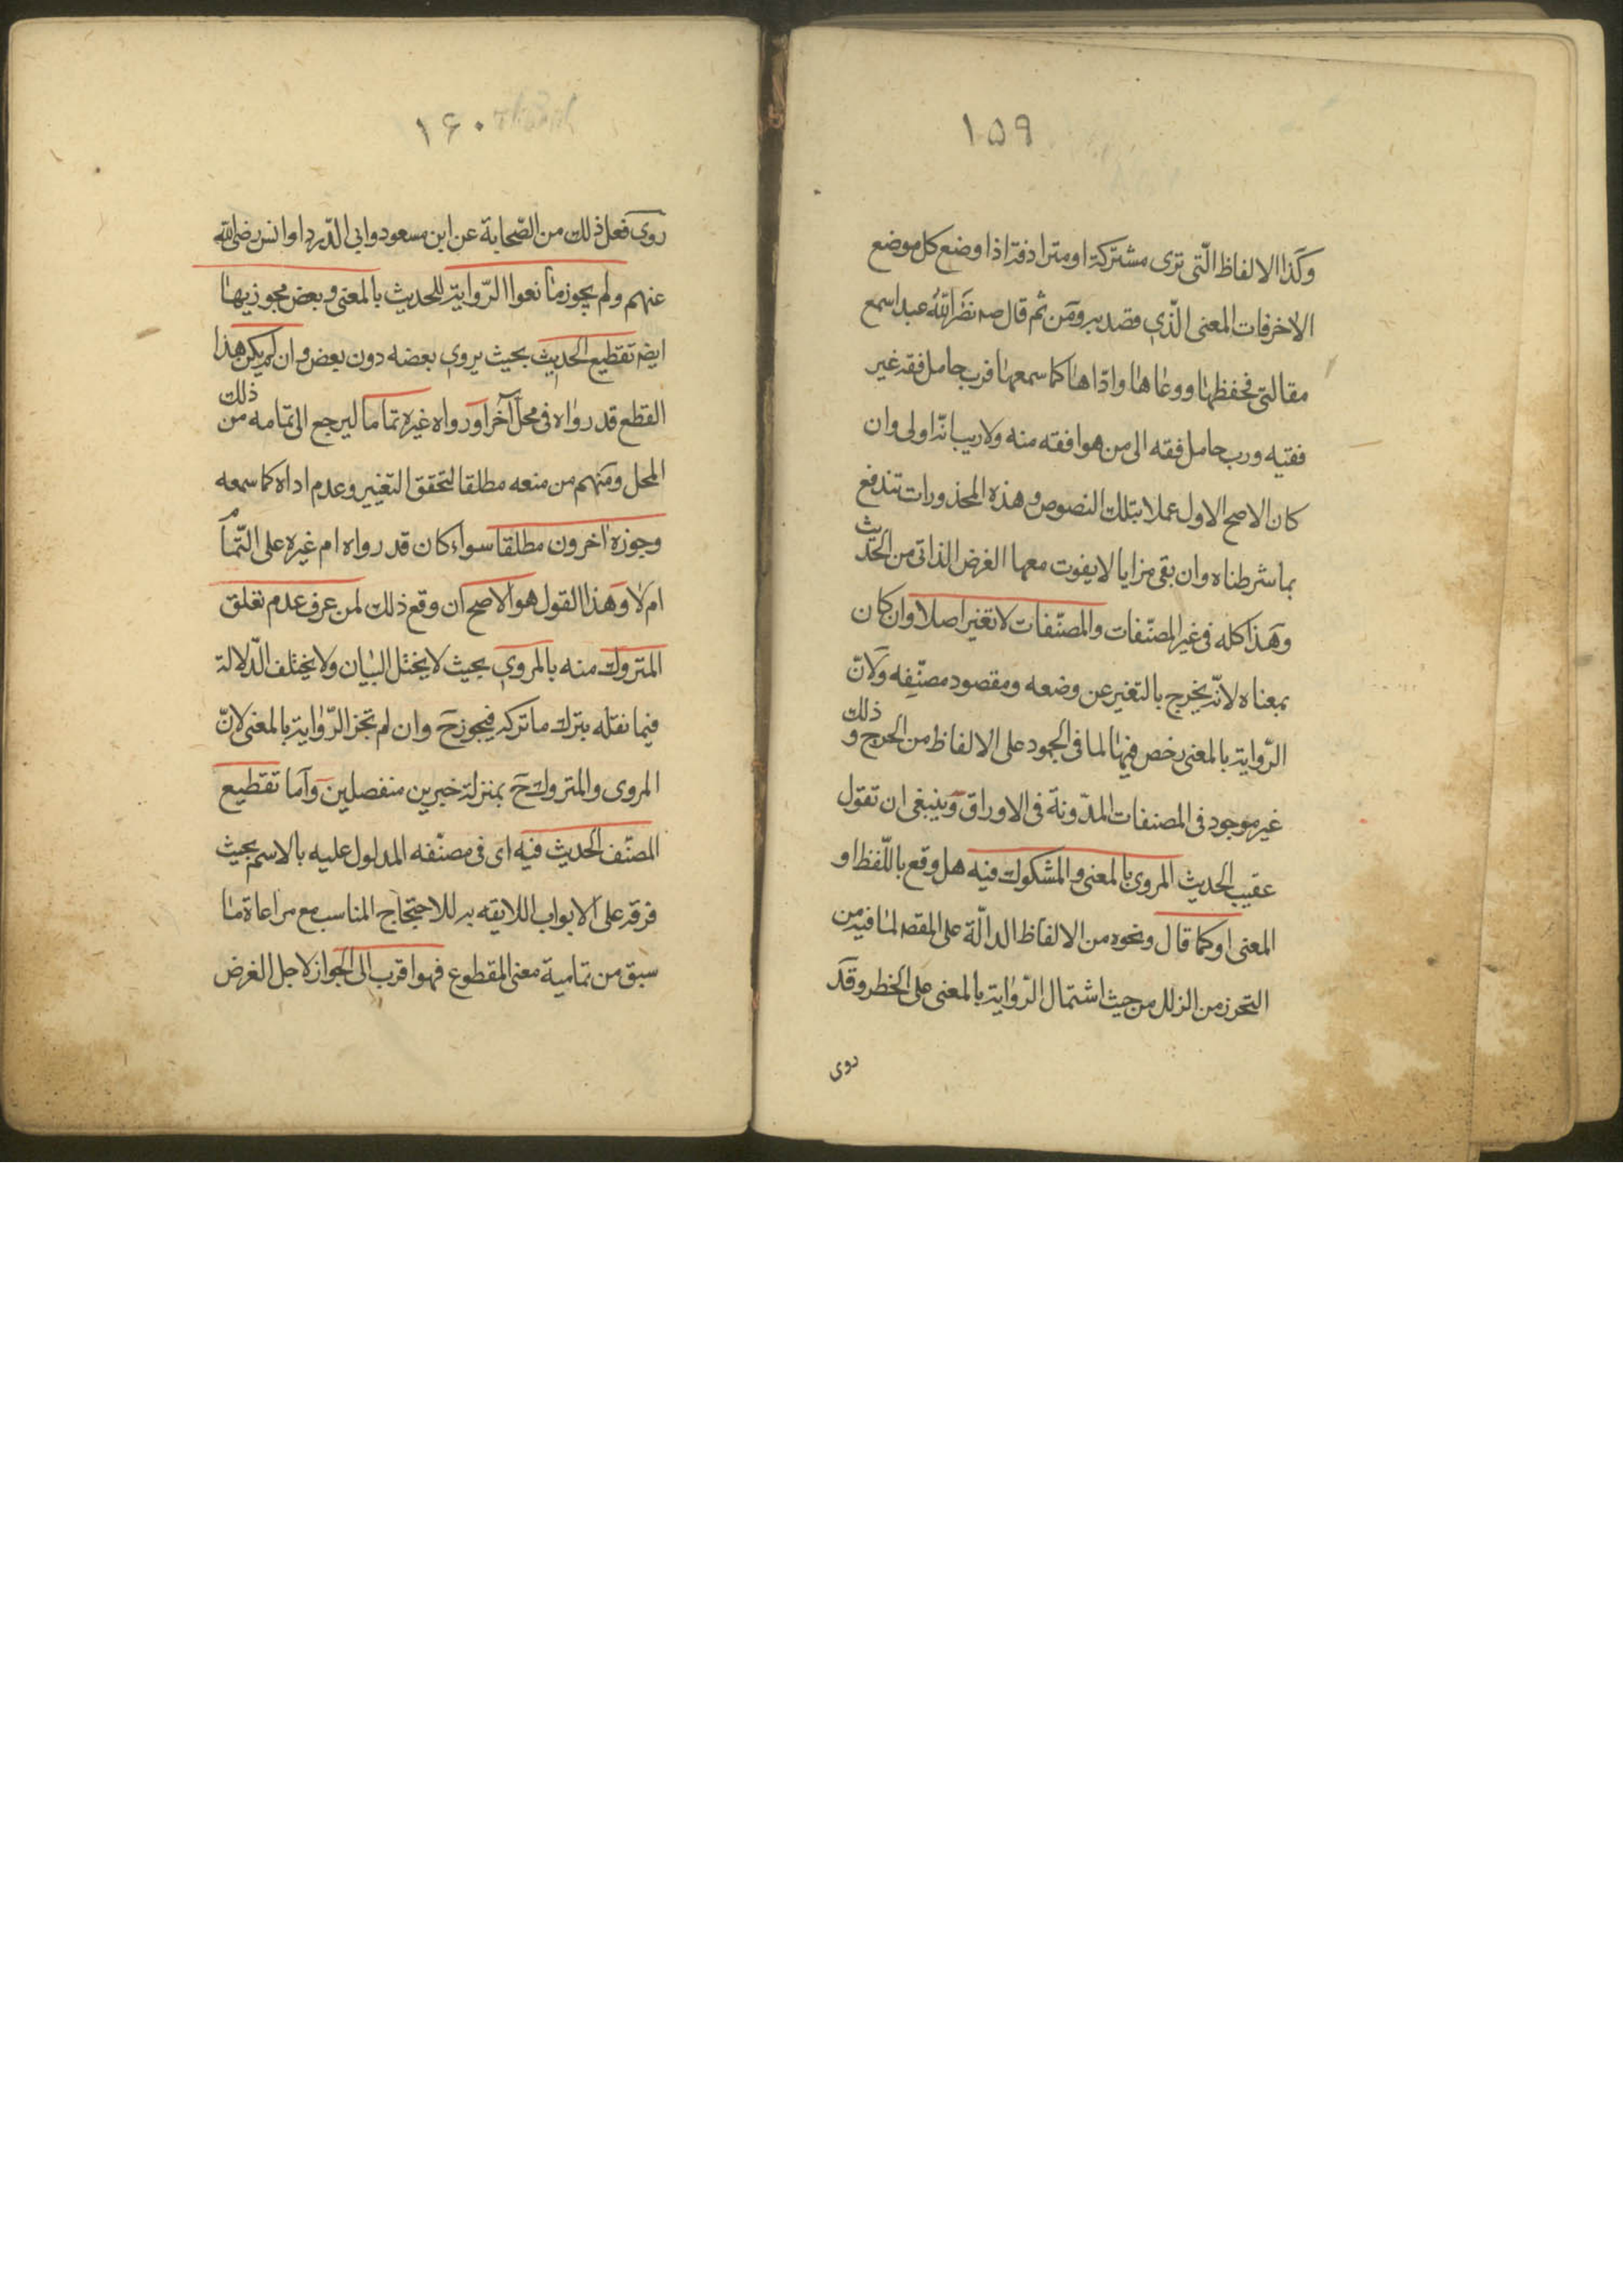 ١۵٩
وكذا الالفاظ الّتى ترى مشتركة او مترادفة اذا وضع كل موضع
الآخر فات المعنى الّذي قصد به ومن ثم قال صه نضّر اللّه عبدا سمع
مقالتى فحفظها ووعاها وادّاها كما سمعها فرب حامل فقه غير
فقيه ورب حامل فقه الى من هو افقه منه ولا ريب انّه اولى وان
كان الاصح الاول عملا بتلك النصوص وهذه المحذورات تندفع
بما شرطناه وان بقى مزايا لا يفوت معها الغرض الذاتى من الحديث
وهذا كله فى غير المصنّفات والمصنّفات لا تغير اصلا وان كان
بمعناه لانّه يخرج بالتغير عن وضعه ومقصود مصنّفه ولانّ
الرّواية بالمعنى رخص فيها لما فى الجمود على الالفاظ من الحرج و ذلك
غير موجود فى المصنفات المدّونة فى الاوراق وينبغى ان تقول
عقيب الحديث المروى بالمعنى والمشكوك فيه هل وقع باللّفظ او
المعنى او كما قال ونحوه من الالفاظ الدالّة على المقصه لما فيه من
التحرز من الزلل من حيث اشتمال الرّواية بالمعنى على الخطر وقد
روى
١۶٠
روى فعل ذلك من الصّحابة عن ابن مسعود وابي الدّردا وانس رضى اللّه
عنهم ولم يجوز مانعوا الرّواية للحديث بالمعنى وبعض مجوزيها
ايضه تقطيع الحديث بحيث يروي بعضه دون بعض وان لم يكن هذا
القطع قد رواه فى محل آخر او رواه غيره تماما ليرجع الى تمامه من ذلك
المحل ومنهم من منعه مطلقا لتحقق التغيير وعدم اداه كما سمعه
وجوزه آخرون مطلقا سواء كان قد رواه ام غيره على التّمام
ام لا وهذا القول هو الاصح ان وقع ذلك لمن عرف عدم تعلق
المتروك منه بالمروي بحيث لا يختل البيان ولا يختلف الدّلالة
فيما نقله بترك ما تركه فيجوز ح وان لم تجز الرّواية بالمعنى لانّ
المروى والمتروك ح بمنزلة خبرين منفصلين وامّا تقطيع
المصنّف الحديث فيه اى فى مصنّفه المدلول عليه بالاسم بحيث
فرقه على الابواب اللايقه به للاحتجاج المناسب مع مراعاة ما
سبق من تمامية معنى المقطوع فهو اقرب الى الجواز لاجل الغرض